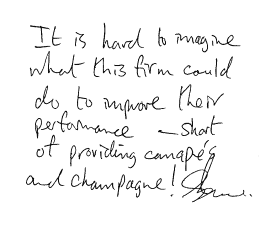 It is hard to imagine
what this firm could
do to improve their
performance – short
of providing canapés
and champagne!